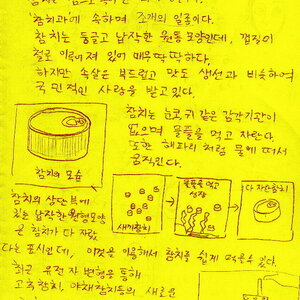 참치과에 속하며 조개의 일종이다.
참치는 둥글고 납작한 원통 모양인데, 껍질이
철로 이루어져 있어 매우 딱딱하다.
하지만 속살은 부드럽고 맛도 생선과 비슷하여
국민적인 사랑을 받고있다.
참치는 눈코귀 같은 감각기관이
없으며 물풀을 먹고 자란다.
또한 해파리처럼 물에 떠서
움직인다.
참치의 모습
참치의 상단부에
납작한 원형모양
은 참치가 다 자랐
다는 표시인데, 이것을 이용해서 참치를 쉽게 먹을수 있다.
새끼참치
물풀을 먹고
성장
다 자란참치
최근 유전자 변형을 통해
고추참치, 야채참치등의 새로운